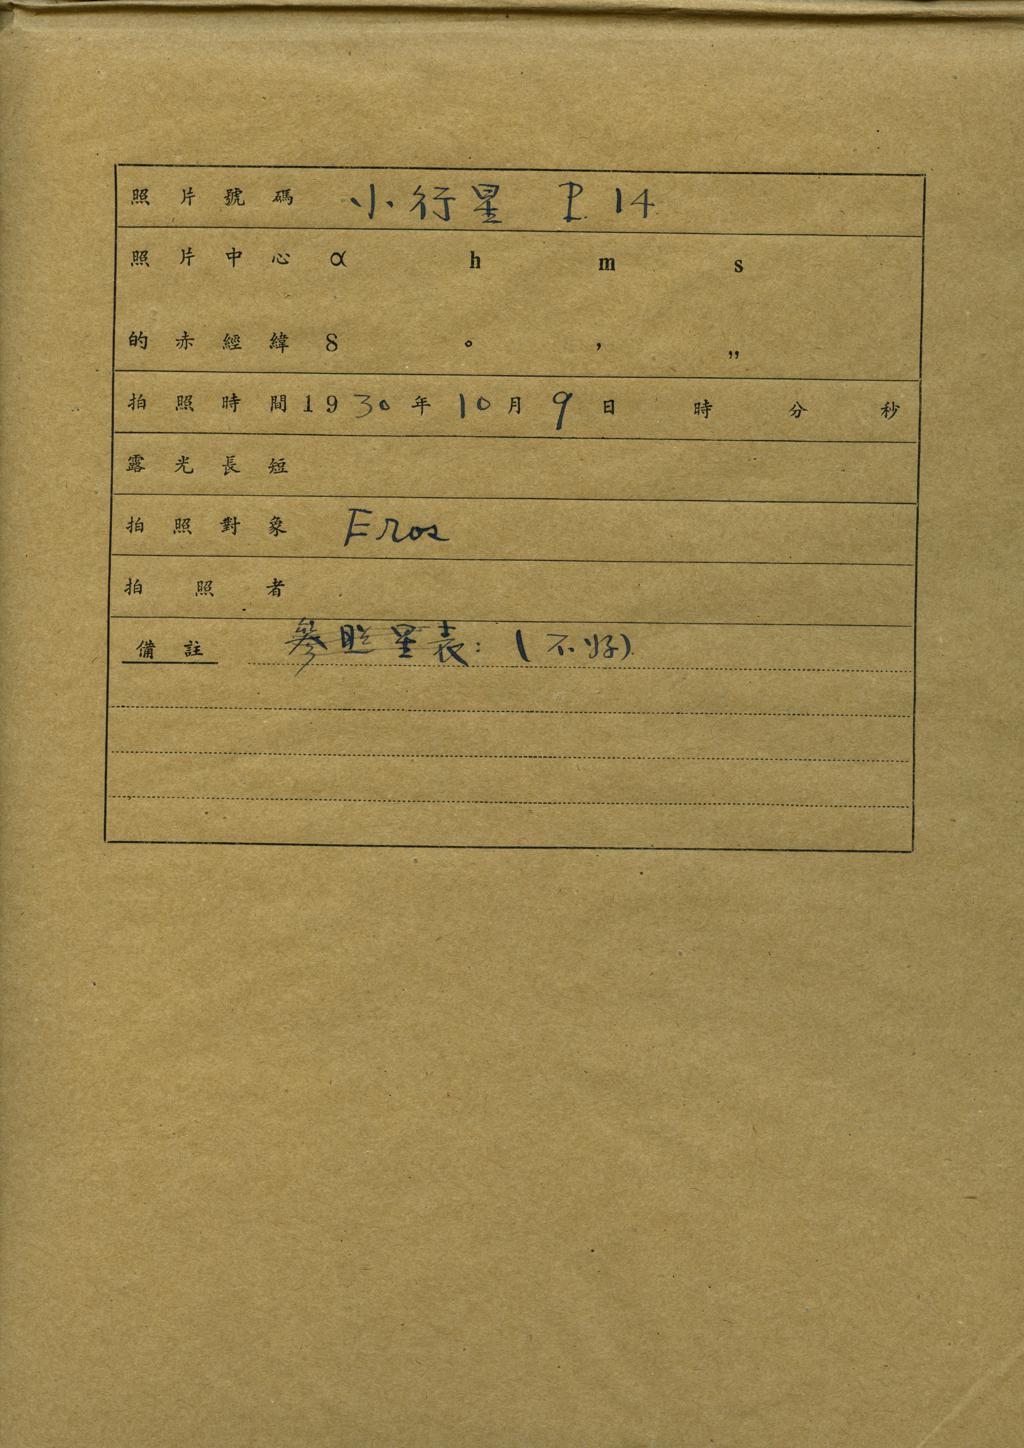 照片號碼 小行星 P. 14
照片中心 α h m s
的赤經緯 δ ° ′ ″
拍照時間 1930年10月9日 時 分 秒
露光長短
拍照對象 Eros
拍照者
備註 參照星表：(不好)